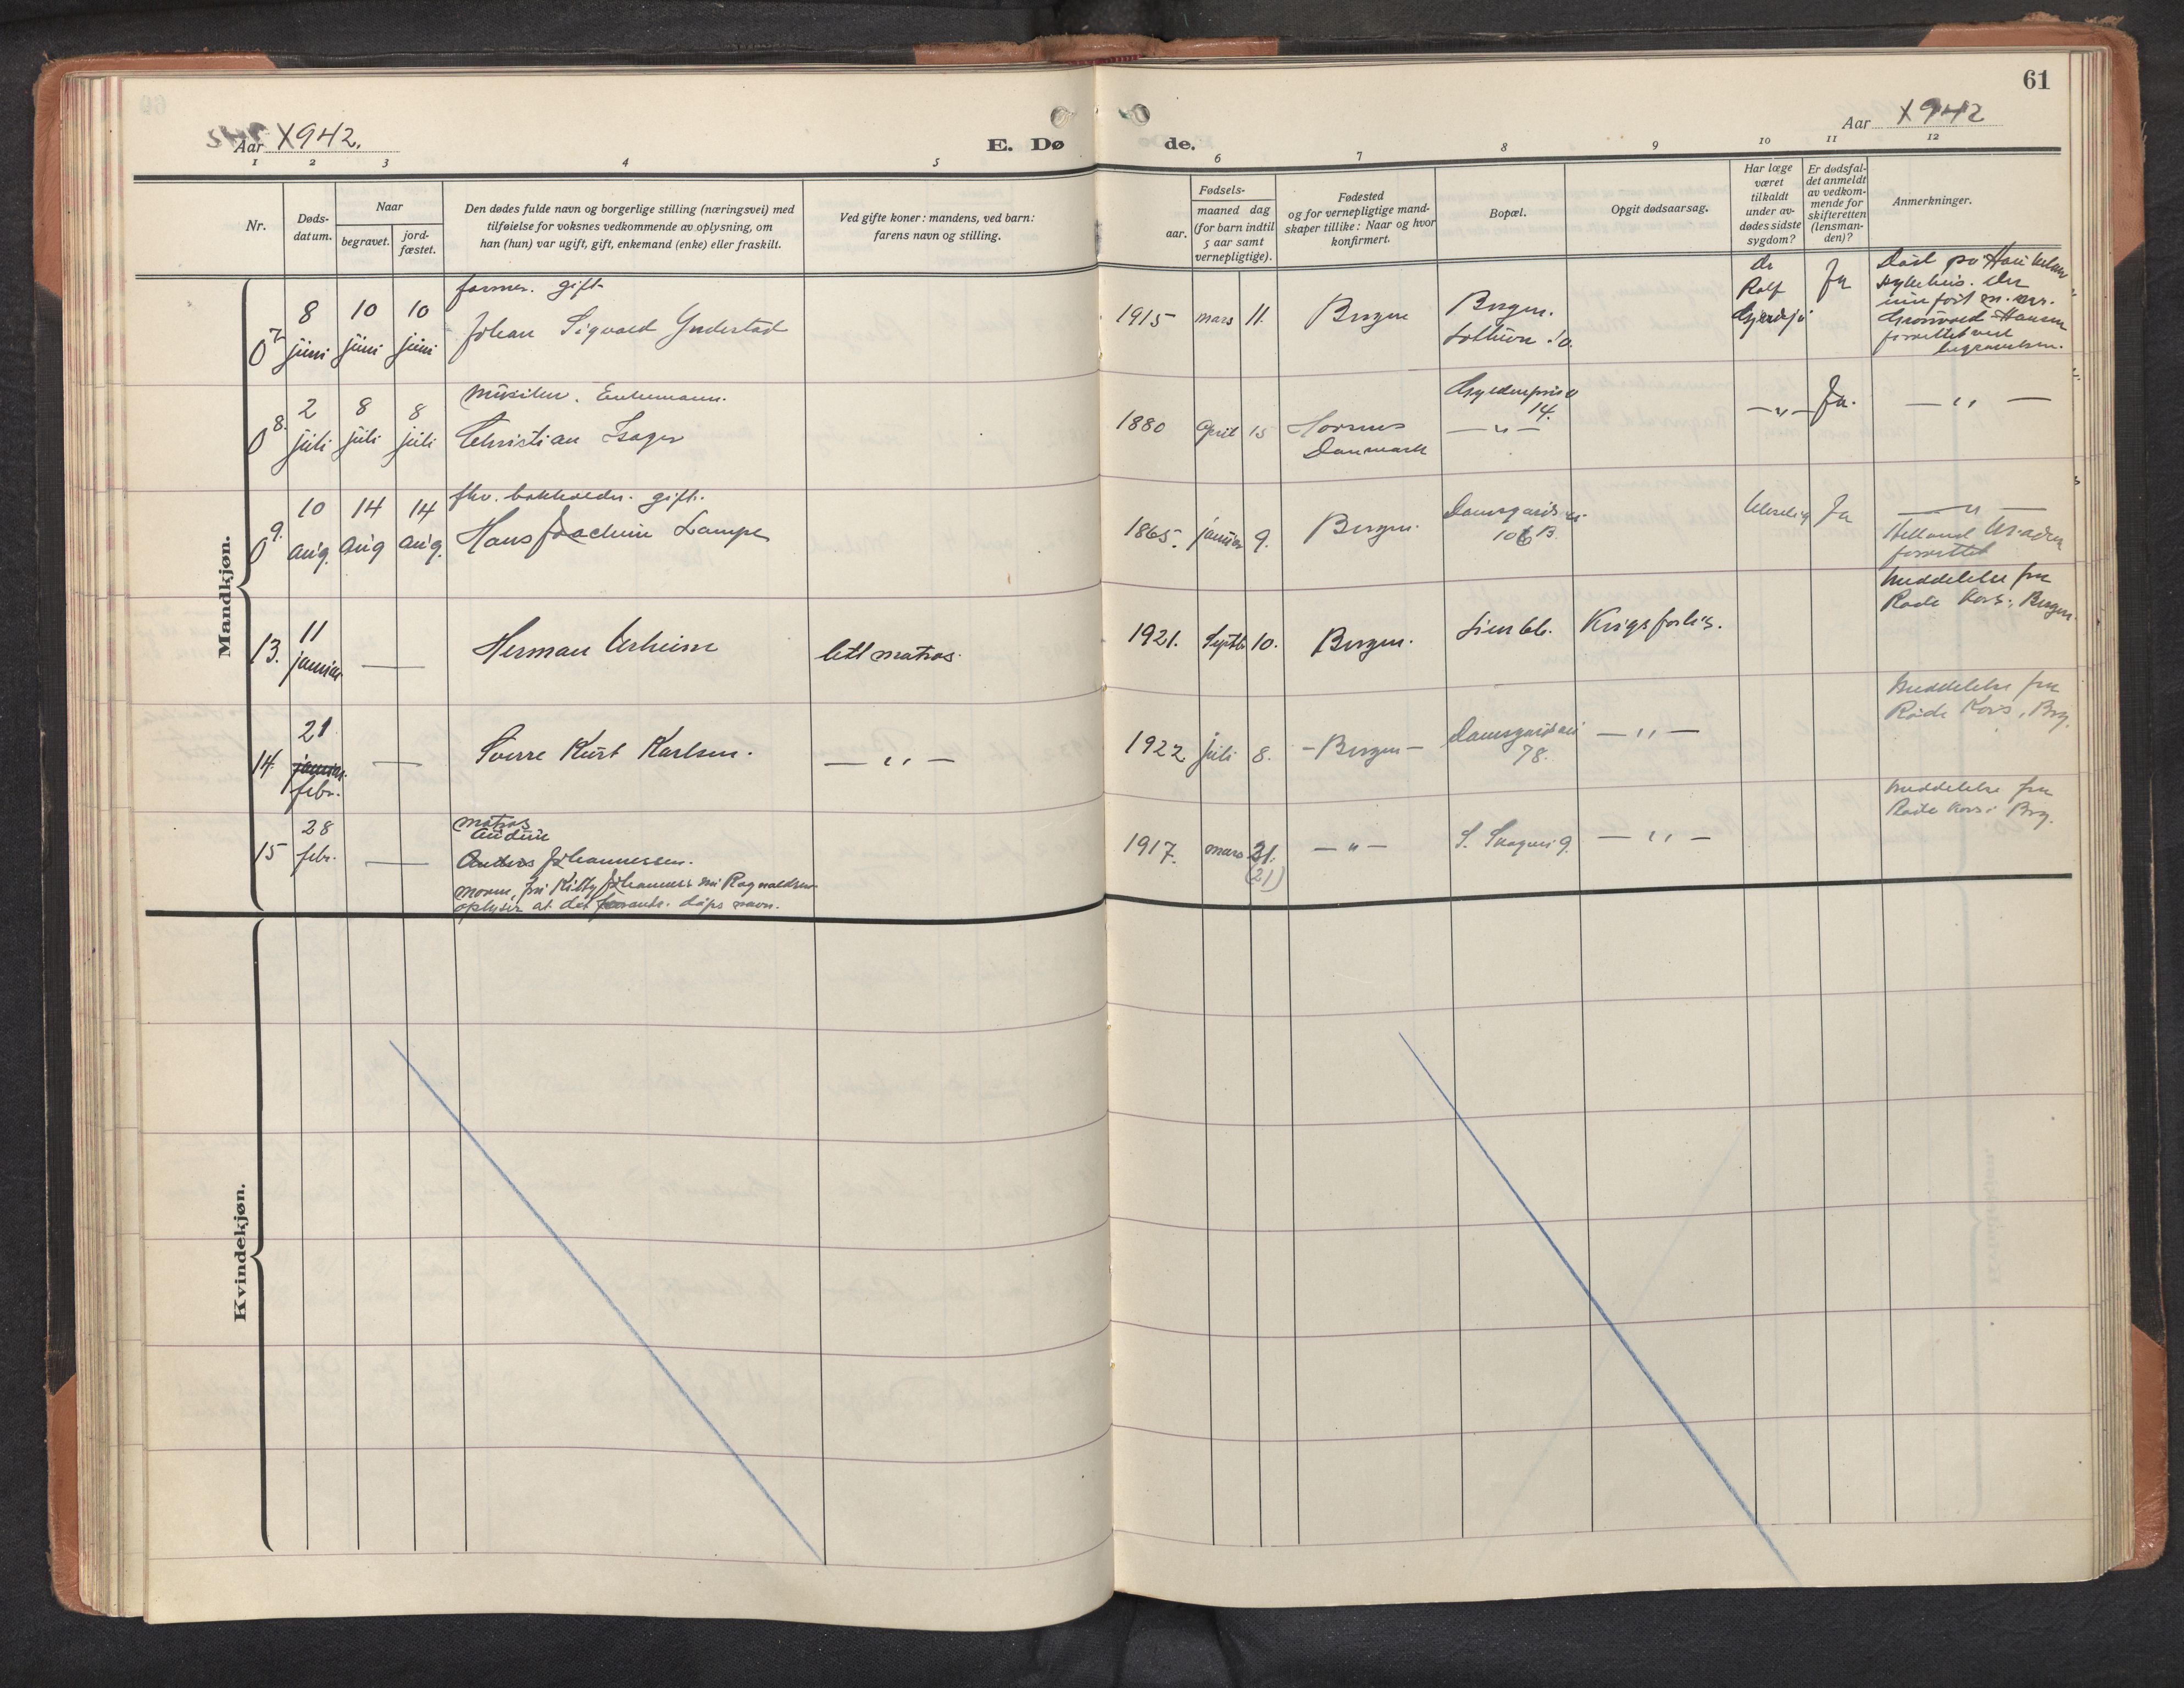 61
Aar X942.
E. Dø
de.
Aar X942
1 2 3 4 5 6 7 8 9 10 11 12
Nr.
Døds-
datum.
Naar
begravet.
jord-
fæstet.
Den dødes fulde navn og borgerlige stilling (næringsvei) med
tilføielse for voksnes vedkommende av oplysning, om
han (hun) var ugift, gift, enkemand (enke) eller fraskilt.
Ved gifte koner: mandens, ved barn:
farens navn og stilling.
Fødsels-
aar.
maaned dag
(for barn indtil
5 aar samt
vernepligtige).
Fødested
og for vernepligtige mand-
skaper tillike: Naar og hvor
konfirmert.
Bopæl.
Opgit dødsaarsag.
Har læge
været
tilkaldt
under av-
dødes sidste
sygdom?
Er dødsfal-
det anmeldt
av vedkom-
mende for
skifteretten
(lensman-
den)?
Anmerkninger.
Mandkjøn.
7
8 juni
10 juni
10 juni
former. gift
Johan Sigvald Yndestad
1915 mars 11.
Bergen
Bergen.
dr
Rolf
Ja
Død på Haukeland
sykehus. Den
Grønvold-Hansen
forrettet ved
begravelsen.
8.
2 juli
8 juli
8 juli
musiker. Enkemann.
Christian Isager
1880 April 15
Danmark
Gyldenpris v
14.
— " —
— " —
Ja.
— " —
9.
10 aug.
14 aug
14 aug.
fhv. bokholder. gift.
Hans Joachim Lampe
1865. januar 9.
Bergen.
Damsgårdsvei
106 B.
Ja
— " —
forrettet
13.
11
januar
—
Herman Urheim
lett matros.
1921. Septb 10.
Bergen.
Lien 66.
Krigsforlis.
Meddelelse fra
Røde Kors, Bergen.
14.
21
januar
febr.
—
Sverre Kurt Karlsen.
— " —
1922 juli 8.
- Bergen -
Damsgårdsvei
78.
— " —
Meddelelse fra
Røde Kors, Brg.
15
28
febr.
—
matros
Audun
Anders Johannessen.
moren, fru Kitty Johannes. née Ragnvaldsen
oplyser at det dåps navn.
1917. mars 21.
(21)
— " —
— " —
Meddelelse fra
Røde Kors Brg.
Kvindekjøn.